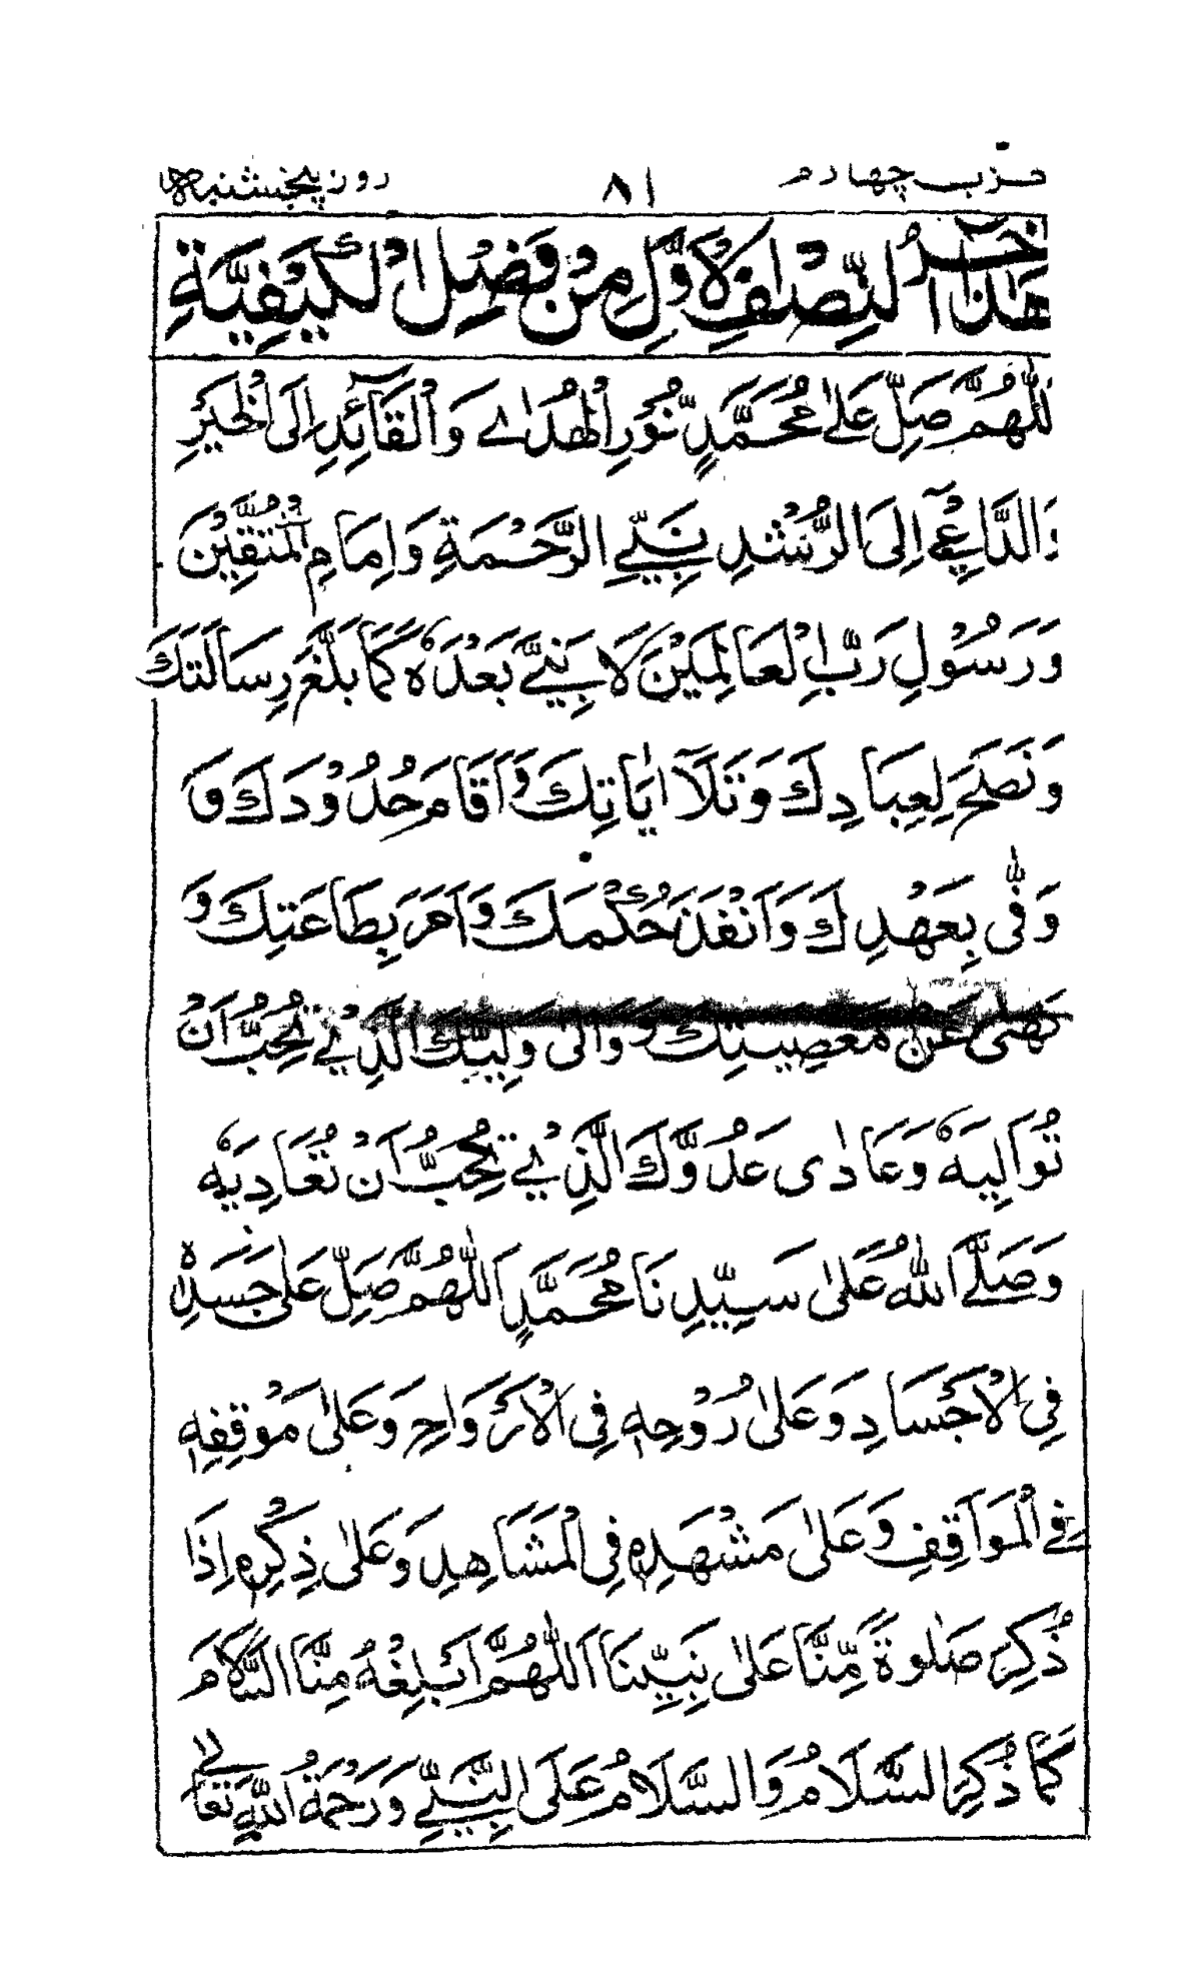 حزب چهارم ٨١ روز پنجشنبه
هٰذَا اٰخِرُ النِّصْفِ الْاَوَّلِ مِنْ فَضْلِ الْكَيْفِيَّةِ
اَللّٰهُمَّ صَلِّ عَلٰى مُحَمَّدٍ نُّوْرِ الْهُدَاے وَالْقَآئِدِ اِلَى الْخَيْرِ
وَالدَّاعِيْٓ اِلَى الرُّشْدِ نَبِيِّ الرَّحْمَةِ وَاِمَامِ الْمُتَّقِيْنَ
وَرَسُوْلِ رَبِّ الْعَالَمِيْنَ لَا نَبِيَّ بَعْدَهٗ كَمَا بَلَّغَ رِسَالَتَكَ
وَنَصَحَ لِعِبَادِكَ وَتَلَآ اٰيَاتِكَ وَاَقَامَ حُدُوْدَكَ وَ
وَفّٰى بِعَهْدِكَ وَاَنْفَذَ حُكْمَكَ وَاَمَرَ بِطَاعَتِكَ وَ
نَهٰى عَنْ مَعْصِيَتِكَ وَوَالٰى وَلِيَّكَ الَّذِيْ تُحِبُّ اَنْ
تُوَالِيَهٗ وَعَادٰى عَدُوَّكَ الَّذِيْ تُحِبُّ اَنْ تُعَادِيَهٗ
وَصَلَّى اللّٰهُ عَلٰى سَيِّدِنَا مُحَمَّدٍ اَللّٰهُمَّ صَلِّ عَلٰى جَسَدِهٖ
فِى الْاَجْسَادِ وَعَلٰى رُوْحِهٖ فِى الْاَرْوَاحِ وَعَلٰى مَوْقِفِهٖ
فِے الْمَوَاقِفِ وَعَلٰى مَشْهَدِهٖ فِى الْمَشَاهِدِ وَعَلٰى ذِكْرِهٖ اِذَا
ذُكِرَ صَلٰوةً مِّنَّا عَلٰى نَبِيِّنَا اَللّٰهُمَّ اَبْلِغْهُ مِنَّا السَّلَامَ
كَمَا ذُكِرَ السَّلَامُ وَالسَّلَامُ عَلَى النَّبِيِّ وَرَحْمَةُ اللّٰهِ تَعَالٰے